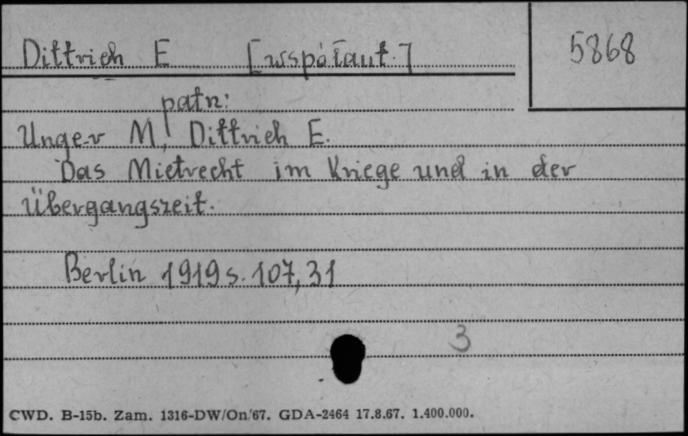 Dittrich E [współaut.]
5868
patrz:
Unger M, Dittrich E.
Das Mietrecht im Kriege und in der
Übergangszeit.
Berlin 1919 s. 107, 31
3
CWD. B-15b. Zam. 1316-DW/On/67. GDA-2464 17.8.67. 1.400.000.